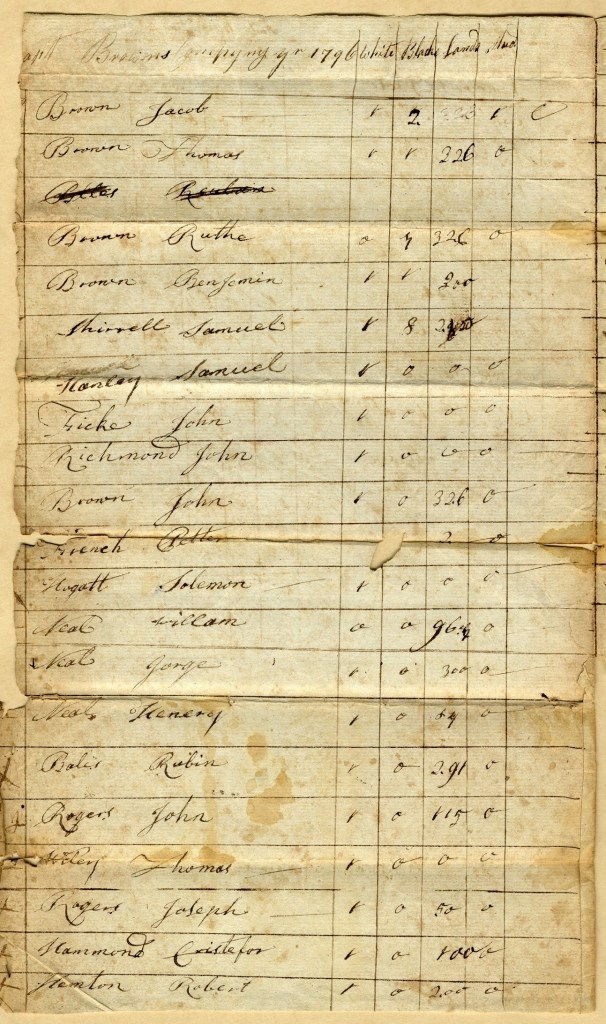 Capt Browns Compyny yr 1796 White Black Lands Stud
Brown Jacob 1 2 326 1
Brown Thomas 1 1 326 0
Reuben
Brown Ruthe 0 7 326 0
Brown Benjemin 1 1 200
Samuel 1 8
Hanley Samuel 1 0 0 0
Ficke John 1 0 0 0
Richmond John 1 0 0 0
Brown John 1 0 326 0
French Petter 2 0
Hogatt Solemon 1 0 0 0
Neal William 0 0 964 0
Neal Jorge 1 0 300 0
Neal Henery 1 0 0
Bales Rubin 1 0 291 0
Rogers John 1 0 115 0
Thomas 1 0 0 0
Rogers Joseph 1 0 50 0
Hammond Cristefor 1 0 100 0
Hemton Robert 1 0 200 0